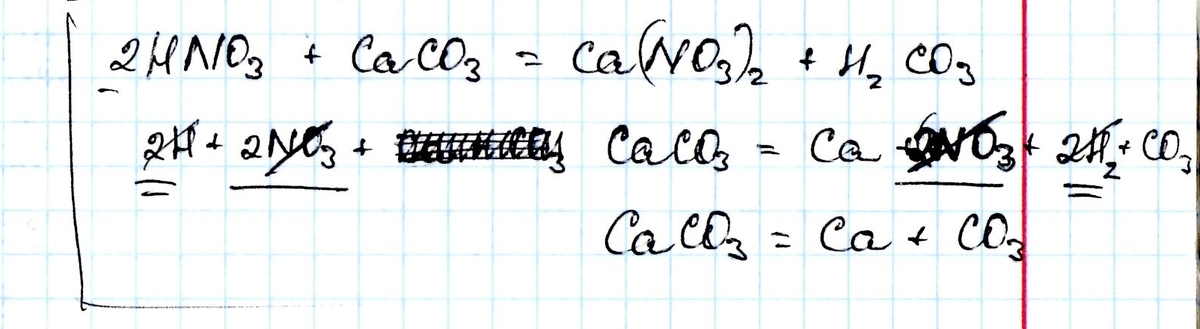 2HNO₃ + CaCO₃ = Ca(NO₃)₂ + H₂CO₃
2H + 2NO₃ + CaCO₃ = Ca + 2NO₃ + 2H₂ + CO₃
CaCO₃ = Ca + CO₃